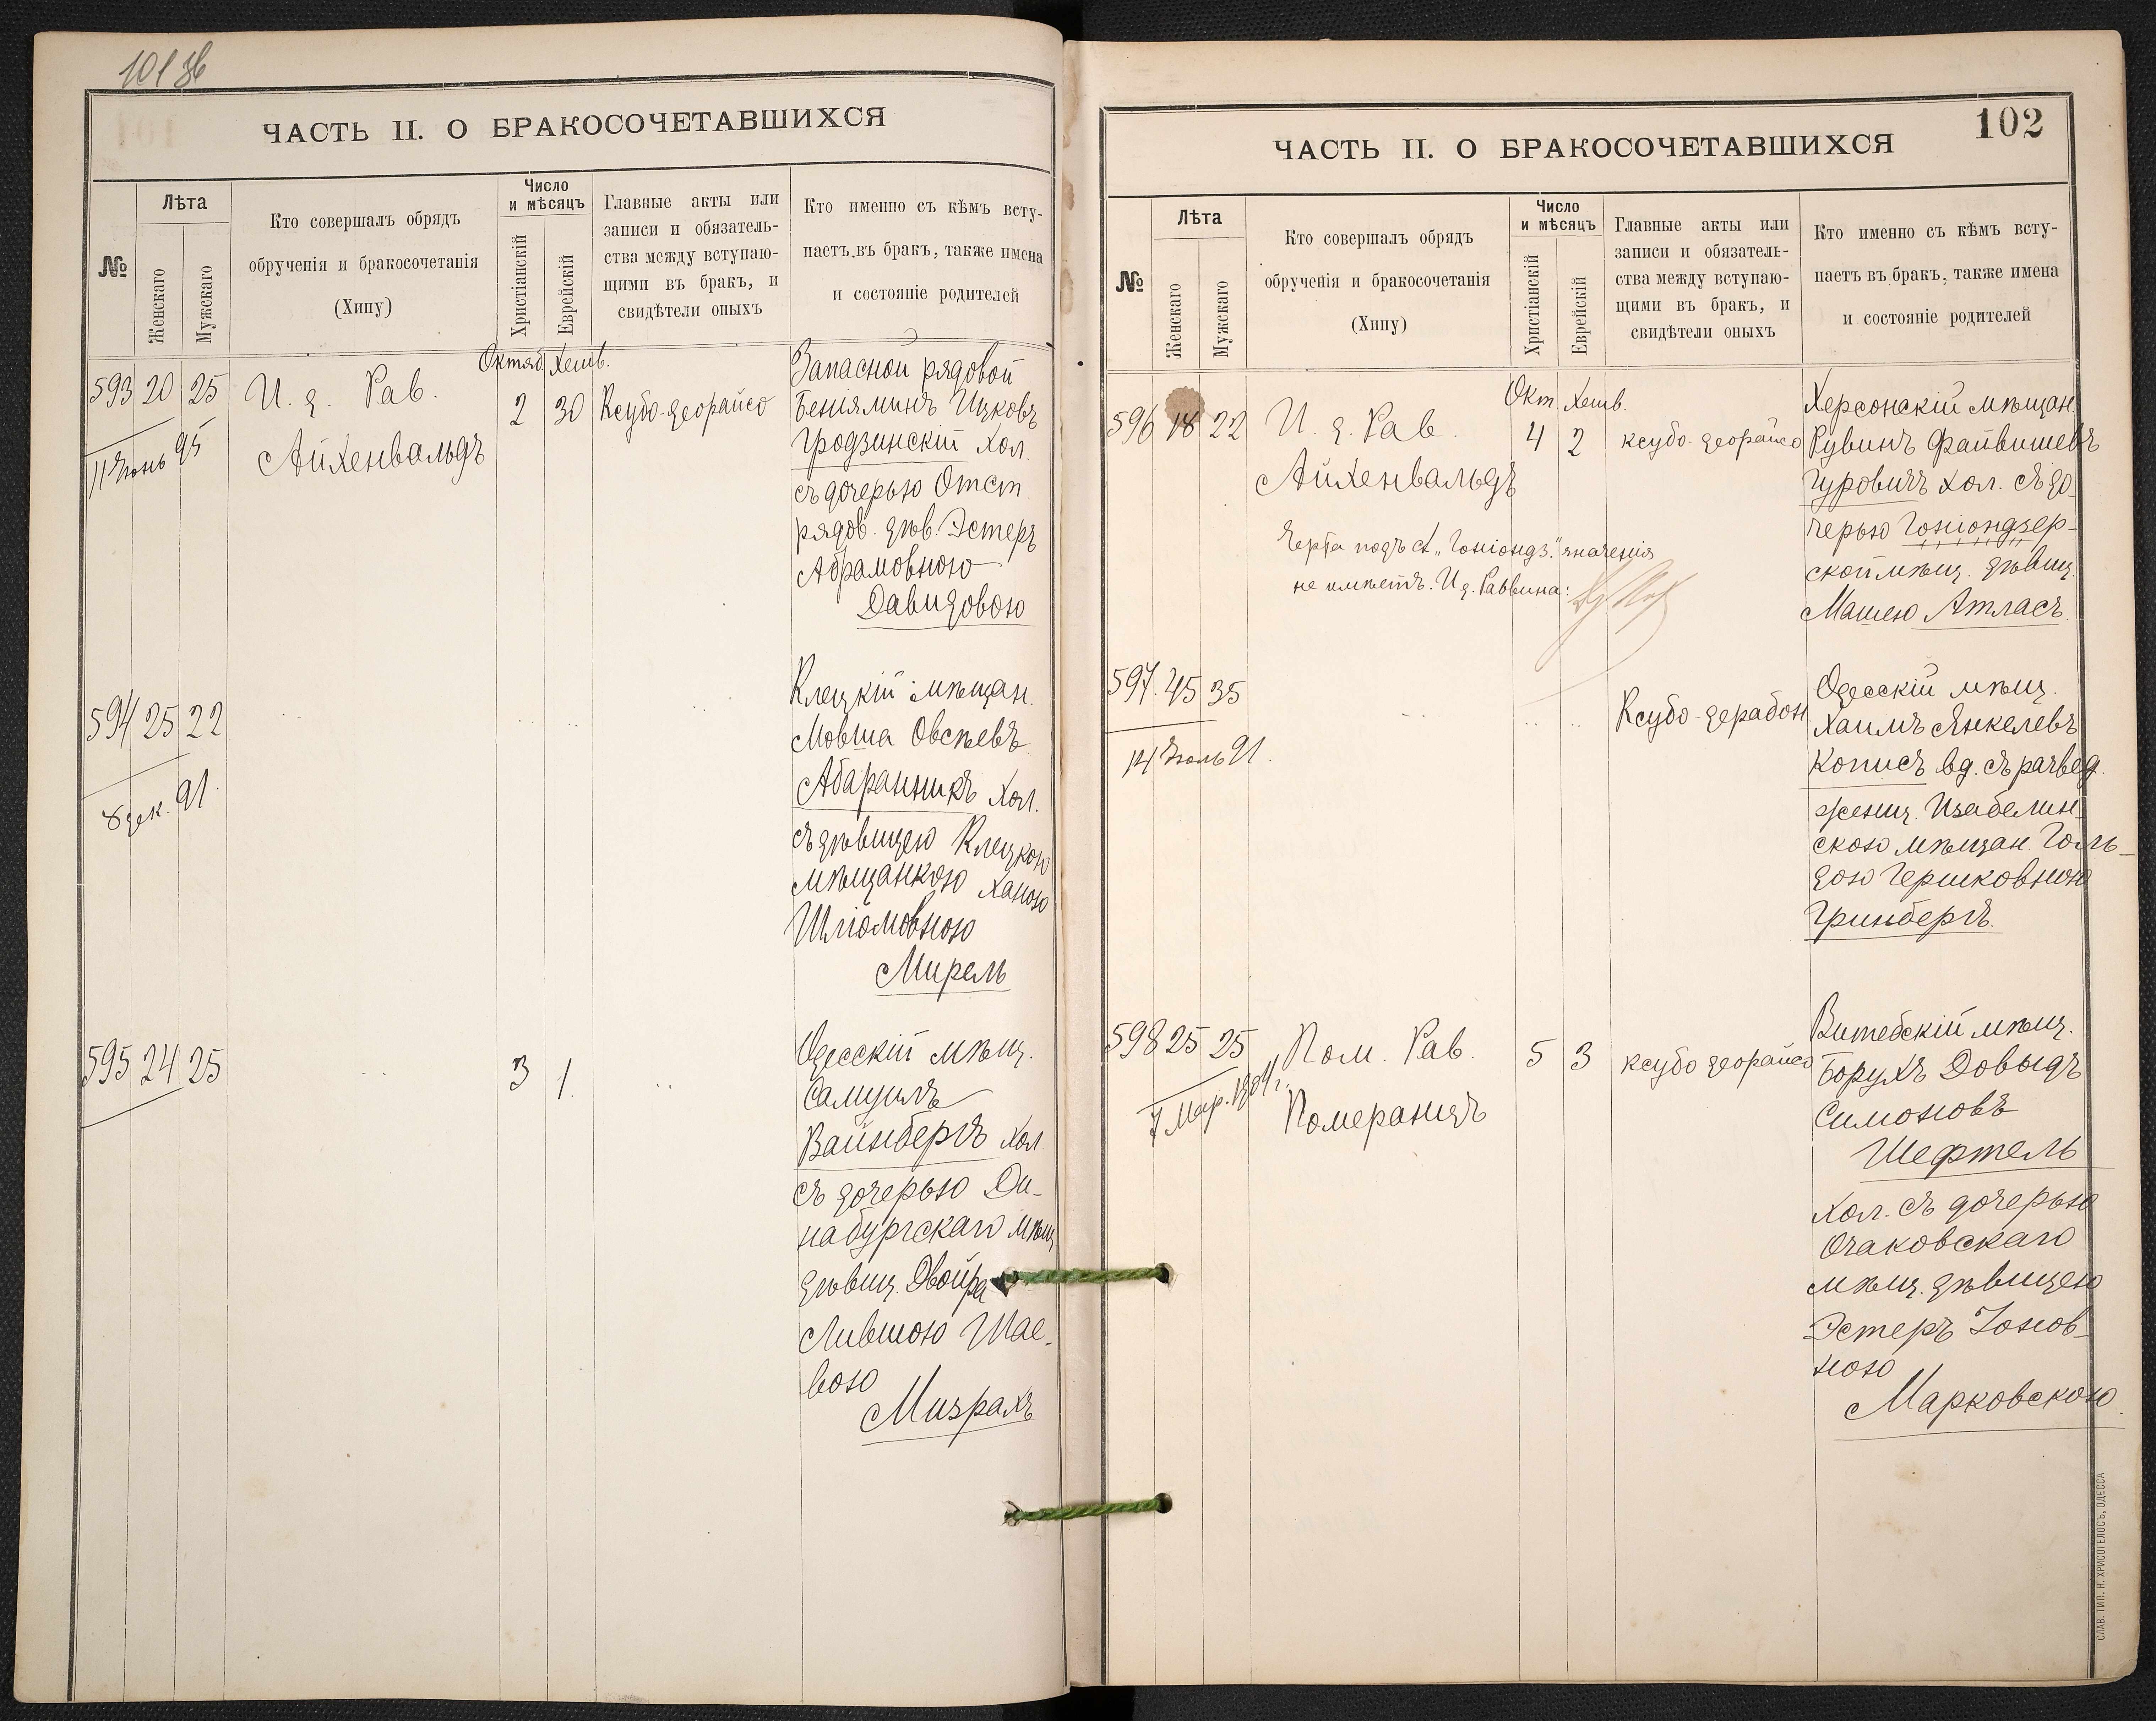 101 об
ЧАСТЬ II. О БРАКОСОЧЕТАВШИХСЯ
№
Лѣта
Женскаго
Мужскаго
Кто совершалъ обрядъ
обрученія и бракосочетанія
(Хипу)
Число
и мѣсяцъ
Христіанскій
Еврейскій
Главные акты или
записи и обязатель-
ства между вступаю-
щими въ бракъ, и
свидѣтели оныхъ
Кто именно съ кѣмъ всту-
паетъ въ бракъ, также имена
и состояніе родителей
593 20 25
11 Іюнь 95
И. д. Рав.
Айхенвальдъ
Октяб. Хешв.
2 30
Ксубо-деорайсо
Запасной рядовой
Беняминъ Ицковъ
Гродзинскій хол.
съ дочерью Отст.
рядов. дѣв. Эстеръ
Абрамовною
Давидовою
594 25 22
8 дек. 91.
" " " "
Клецкій мѣщан.
Мовша Овсѣевъ
Абаранчикъ хол.
съ дѣвицею Клецкою
мѣщанкою Ханою
Шліомовною
Мирель
595 24 25
"
3 1.
"
Одесскій мѣщ.
Самуилъ
Вайнбергъ хол.
съ дочерью Ди-
набургскаго мѣщ.
дѣвиц. Двойра
Лившою Шае-
вою
Мизрахъ
102
ЧАСТЬ II. О БРАКОСОЧЕТАВШИХСЯ
№
Лѣта
Женскаго
Мужскаго
Кто совершалъ обрядъ
обрученія и бракосочетанія
(Хипу)
Число
и мѣсяцъ
Христіанскій
Еврейскій
Главные акты или
записи и обязатель-
ства между вступаю-
щими въ бракъ, и
свидѣтели оныхъ
Кто именно съ кѣмъ всту-
паетъ въ бракъ, также имена
и состояніе родителей
596 18 22
И. д. Рав.
Айхенвальдъ
Черта подъ сл. „Гоніондз." значенія
не имѣетъ. И д. Раввина:
Окт. Хешв.
4 2
ксубо-деорайсо
Херсонскій мѣщан.
Рувинъ Файвишевъ
Гуровичъ хол. съ до-
черью Гоніондзер-
ской мѣщ. дѣвиц.
Машею Атласъ.
597. 45 35
14 Іюль 91.
" " "
Ксубо-дерабон.
Одесскій мѣщ.
Хаимъ Янкелевъ
Кописъ вд. съ развед.
женщ. Изабелин-
скою мѣщан. Голь-
дою Гершковною
Гринбергъ.
598 25 25
7 Мар. 1904 г.
Пом. Рав.
Померанцъ
5 3
ксубо деорайсо
Витебскій мѣщ.
Борухъ Довыдъ
Симоновъ
Шефтель
хол. съ дочерью
Очаковскаго
мѣщ. дѣвицею
Эстеръ Іонов-
ною
Марковскою.
СЛАВ. ТИП. Н. ХРИСОГЕЛОСЪ, ОДЕССА